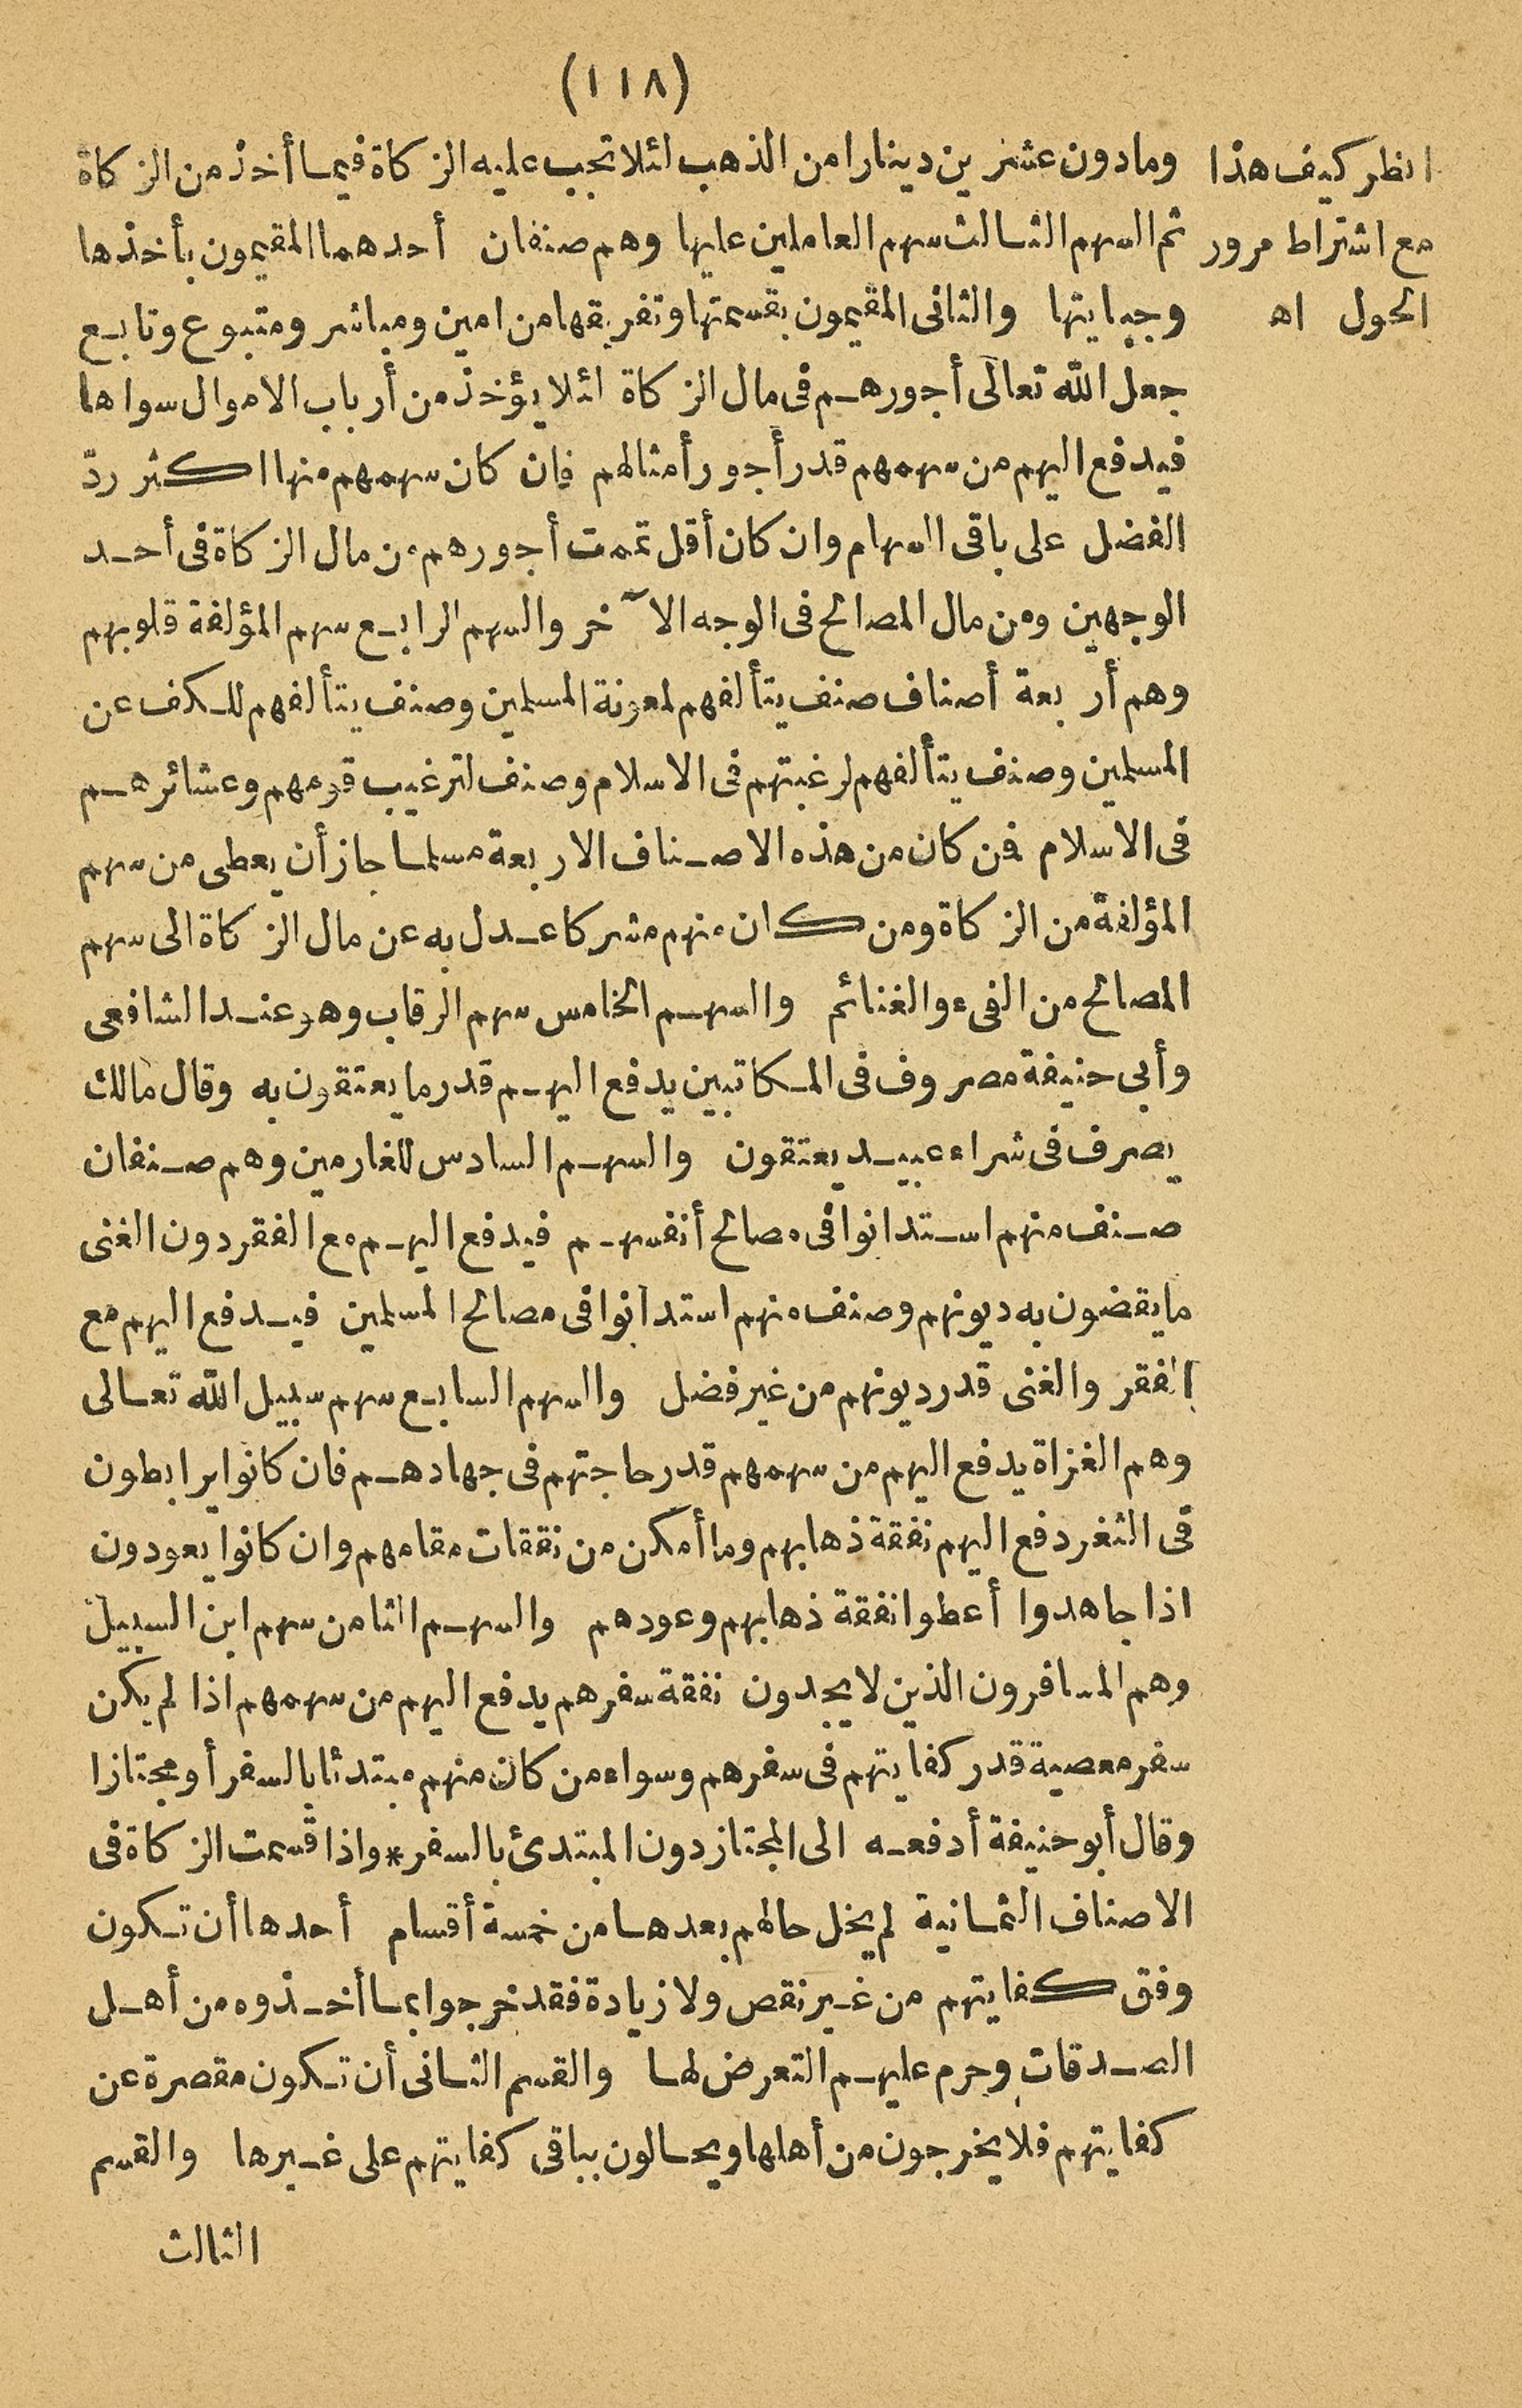 (١١٨)
انظر كيف هذا
مع اشتراط مرور
الحول اه
ومادون عشرين دينارا من الذهب لئلا تجب عليه الزكاة فيما أخذ من الزكاة
ثم السهم الثالث سهم العاملين عليها وهم صنفان أحدهما المقيمون بأخذها
وجبايتها والثانى المقيمون بقسمتها وتفريقها من امين ومباشر ومتبوع وتابع
جعل الله تعالى أجورهم فى مال الزكاة لئلا يؤخذ من أرباب الاموال سواها
فيدفع اليهم من سهمهم قدر أجور أمثالهم فان كان سهمهم منها اكثر ردّ
الفضل على باقى السهام وان كان أقل تممت أجورهم من مال الزكاة فى أحد
الوجهين ومن مال المصالح فى الوجه الآخر والسهم الرابع سهم المؤلفة قلوبهم
وهم أربعة أصناف صنف يتألفهم لمعونة المسلمين وصنف يتألفهم للكف عن
المسلمين وصنف يتألفهم لرغبتهم فى الاسلام وصنف لترغيب قومهم وعشائرهم
فى الاسلام فمن كان من هذه الاصناف الاربعة مسلما جاز أن يعطى من سهم
المؤلفة من الزكاة ومن كان منهم مشركا عدل به عن مال الزكاة الى سهم
المصالح من الفىء والغنائم والسهم الخامس سهم الرقاب وهو عند الشافعى
وأبى حنيفة مصروف فى المكاتبين يدفع اليهم قدر ما يعتقون به وقال مالك
يصرف فى شراء عبيد يعتقون والسهم السادس للغارمين وهم صنفان
صنف منهم استدانوا فى مصالح أنفسهم فيدفع اليهم مع الفقر دون الغنى
ما يقضون به ديونهم وصنف منهم استدانوا فى مصالح المسلمين فيدفع اليهم مع
الفقر والغنى قدر ديونهم من غير فضل والسهم السابع سهم سبيل الله تعالى
وهم الغزاة يدفع اليهم من سهمهم قدر حاجتهم فى جهادهم فان كانوا يرابطون
فى الثغر دفع اليهم نفقة ذهابهم وما أمكن من نفقات مقامهم وان كانوا يعودون
اذا جاهدوا أعطوا نفقة ذهابهم وعودهم والسهم الثامن سهم ابن السبيل
وهم المسافرون الذين لا يجدون نفقة سفرهم يدفع اليهم من سهمهم اذا لم يكن
سفر معصية قدر كفايتهم فى سفرهم وسواء من كان منهم مبتدئا بالسفر أو مجتازا
وقال أبو حنيفة أدفعه الى المجتاز دون المبتدئ بالسفر * واذا قسمت الزكاة فى
الاصناف الثمانية لم يخل حالهم بعدها من خمسة أقسام أحدها أن تكون
وفق كفايتهم من غير نقص ولا زيادة فقد خرجوا بما أخذوه من أهل
الصدقات وحرم عليهم التعرض لها والقسم الثانى أن تكون مقصرة عن
كفايتهم فلا يخرجون من أهلها ويحالون بباقى كفايتهم على غيرها والقسم
الثالث